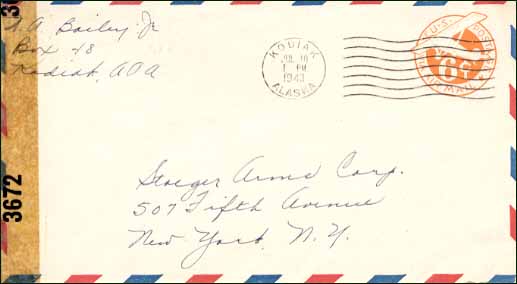 A. Bailey Jr
Box 48
Kodiak, AOA
KODIAK
JUL 10
1 PM
1943
ALASKA
U.S. POSTAGE
6¢
AIR MAIL
Stoeger Arms Corp.
507 Fifth Avenue
New York, N.Y.
3672